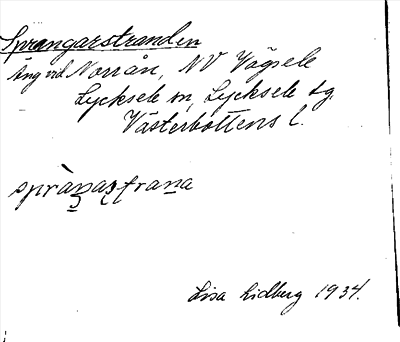 Sprangarstranden
Äng vid Norrån, NV Vägsele
Lycksele sn, Lycksele tg.
Västerbottens l.
Lisa Lidberg 1934.